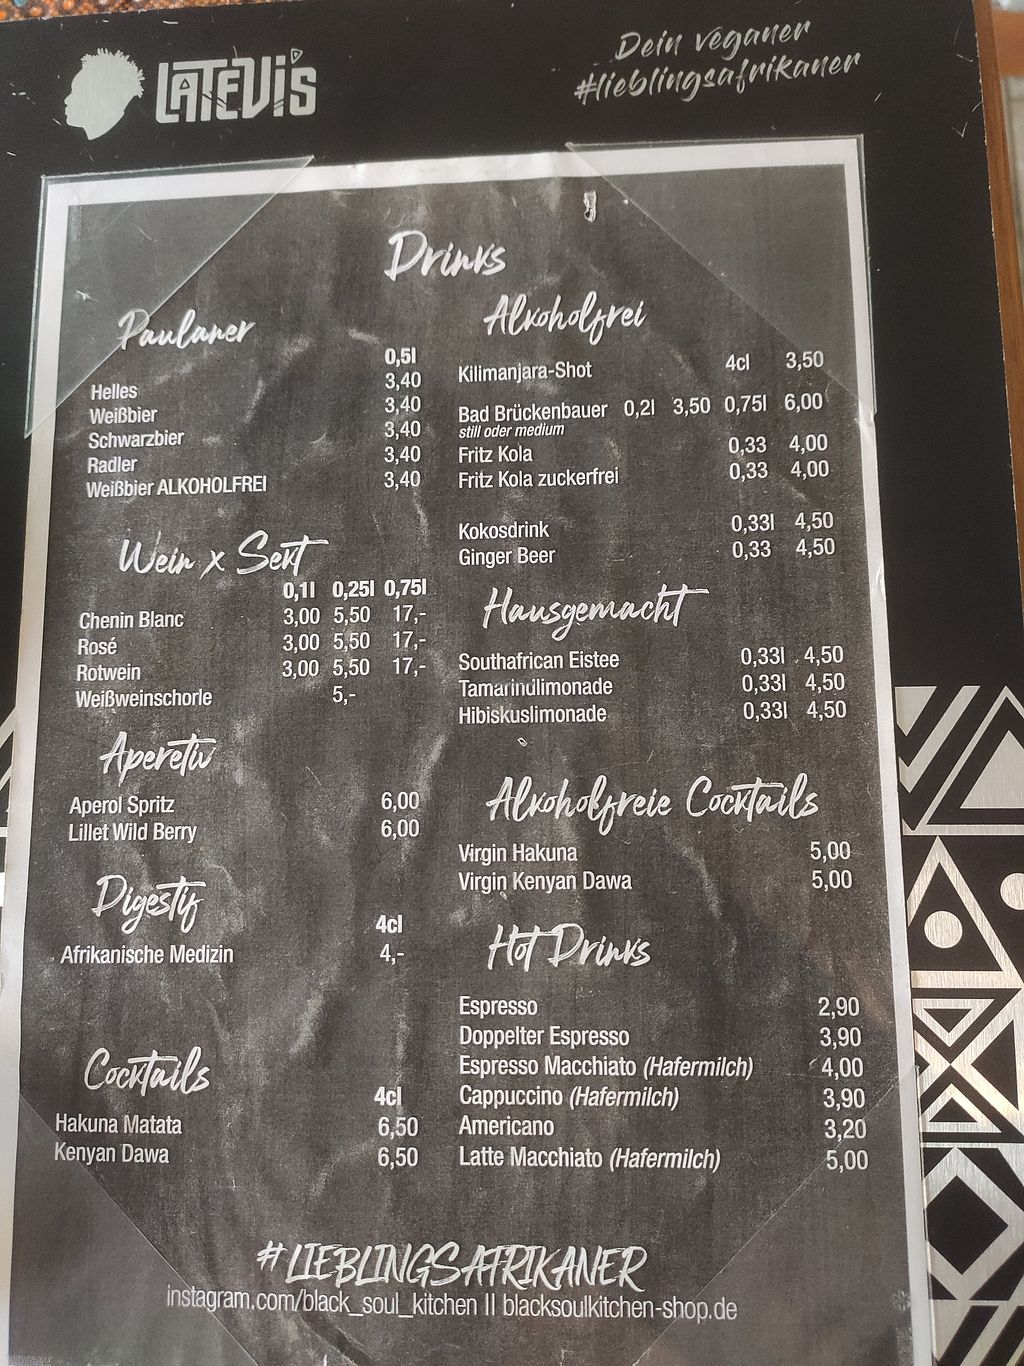 LATEVI'S
Dein veganer
#lieblingsafrikaner
Drinks
Paulaner
0,5l
Helles 3,40
Weißbier 3,40
Schwarzbier 3,40
Radler 3,40
Weißbier ALKOHOLFREI 3,40
Wein x Sekt
0,1l 0,25l 0,75l
Chenin Blanc 3,00 5,50 17,-
Rosé 3,00 5,50 17,-
Rotwein 3,00 5,50 17,-
Weißweinschorle 5,-
Aperetiv
Aperol Spritz 6,00
Lillet Wild Berry 6,00
Digestif
4cl
Afrikanische Medizin 4,-
Cocktails
4cl
Hakuna Matata 6,50
Kenyan Dawa 6,50
Alkoholfrei
Kilimanjara-Shot 4cl 3,50
Bad Brückenbauer 0,2l 3,50 0,75l 6,00
still oder medium
Fritz Kola 0,33 4,00
Fritz Kola zuckerfrei 0,33 4,00
Kokosdrink 0,33l 4,50
Ginger Beer 0,33 4,50
Hausgemacht
Southafrican Eistee 0,33l 4,50
Tamarindlimonade 0,33l 4,50
Hibiskuslimonade 0,33l 4,50
Alkoholfreie Cocktails
Virgin Hakuna 5,00
Virgin Kenyan Dawa 5,00
Hot Drinks
Espresso 2,90
Doppelter Espresso 3,90
Espresso Macchiato (Hafermilch) 4,00
Cappuccino (Hafermilch) 3,90
Americano 3,20
Latte Macchiato (Hafermilch) 5,00
#LIEBLINGSAFRIKANER
instagram.com/black_soul_kitchen II blacksoulkitchen-shop.de